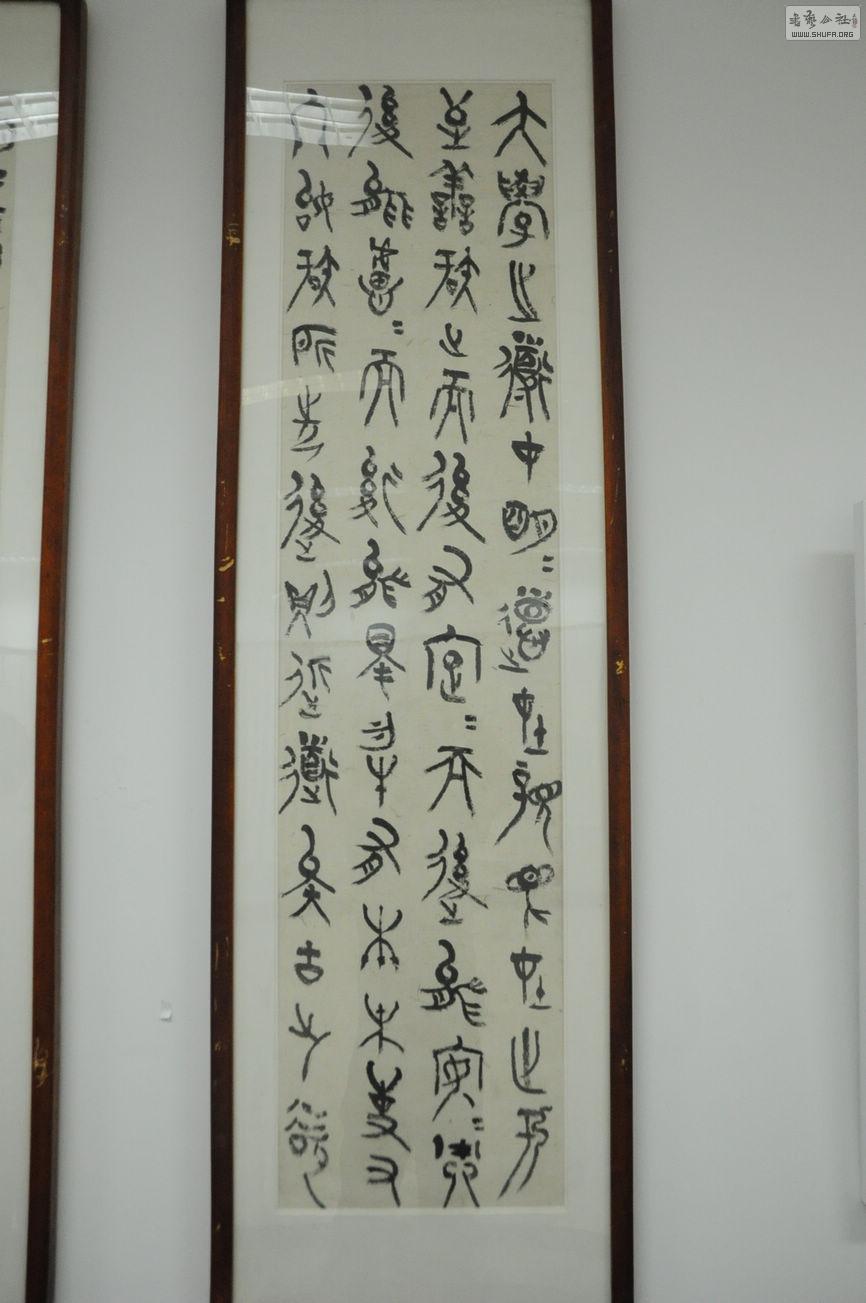 大學之道在明=德在親民在止於
至善知止而後有定=而後能安=而
後能慮=而後能得物有本末事又
終始知所先後則近道矣古之欲
書藝公社
WWW.SHUFA.ORG